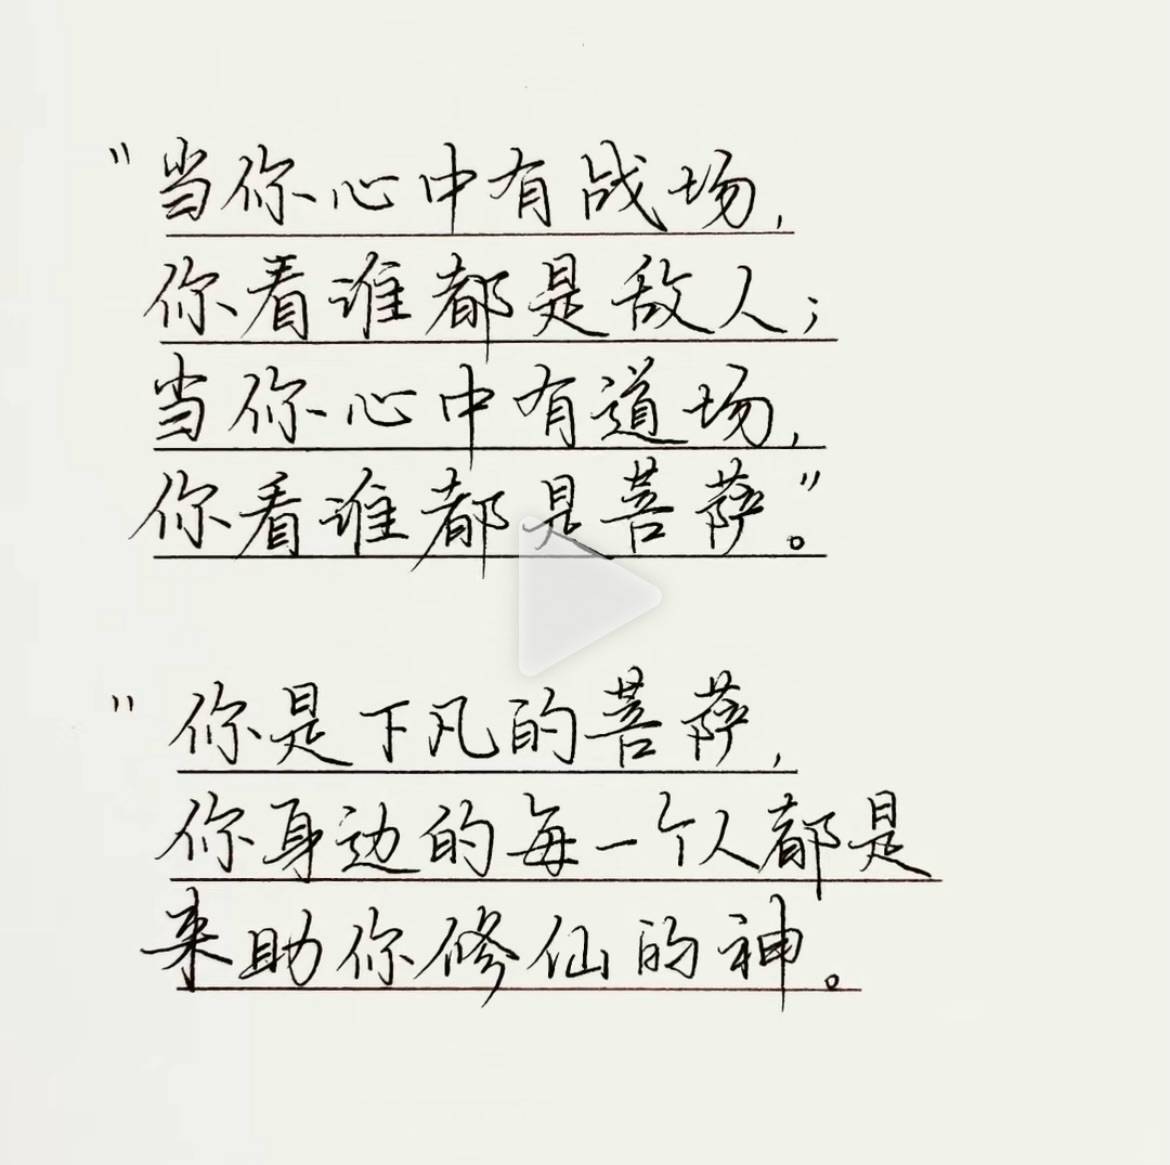 "当你心中有战场,
你看谁都是敌人;
当你心中有道场,
你看谁都是菩萨。"
"你是下凡的菩萨,
你身边的每一个人都是
来助你修仙的神。